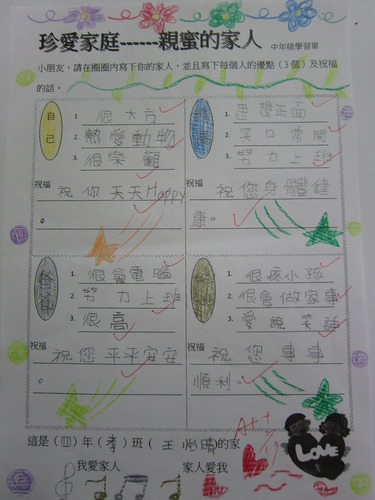 珍愛家庭------親蜜的家人 中年級學習單
小朋友，請在圈圈內寫下你的家人，並且寫下每個人的優點（3個）及祝福
的話。
自己
1. 很大方
2. 熱愛動物
3. 很樂觀
祝福
祝你天天Happy
。
1. 思想正面
2. 笑口常開
3. 努力上班
祝福
祝您身體健
康。
1. 很會電腦
2. 努力上班
3. 很高
祝福
祝您平平安安
。
1. 很疼小孩
2. 很會做家事
3. 愛說笑話
祝福
祝您事事
順利。
A++
這是（四）年（孝）班（王怡晴）的家
我愛家人 家人愛我
LOVE